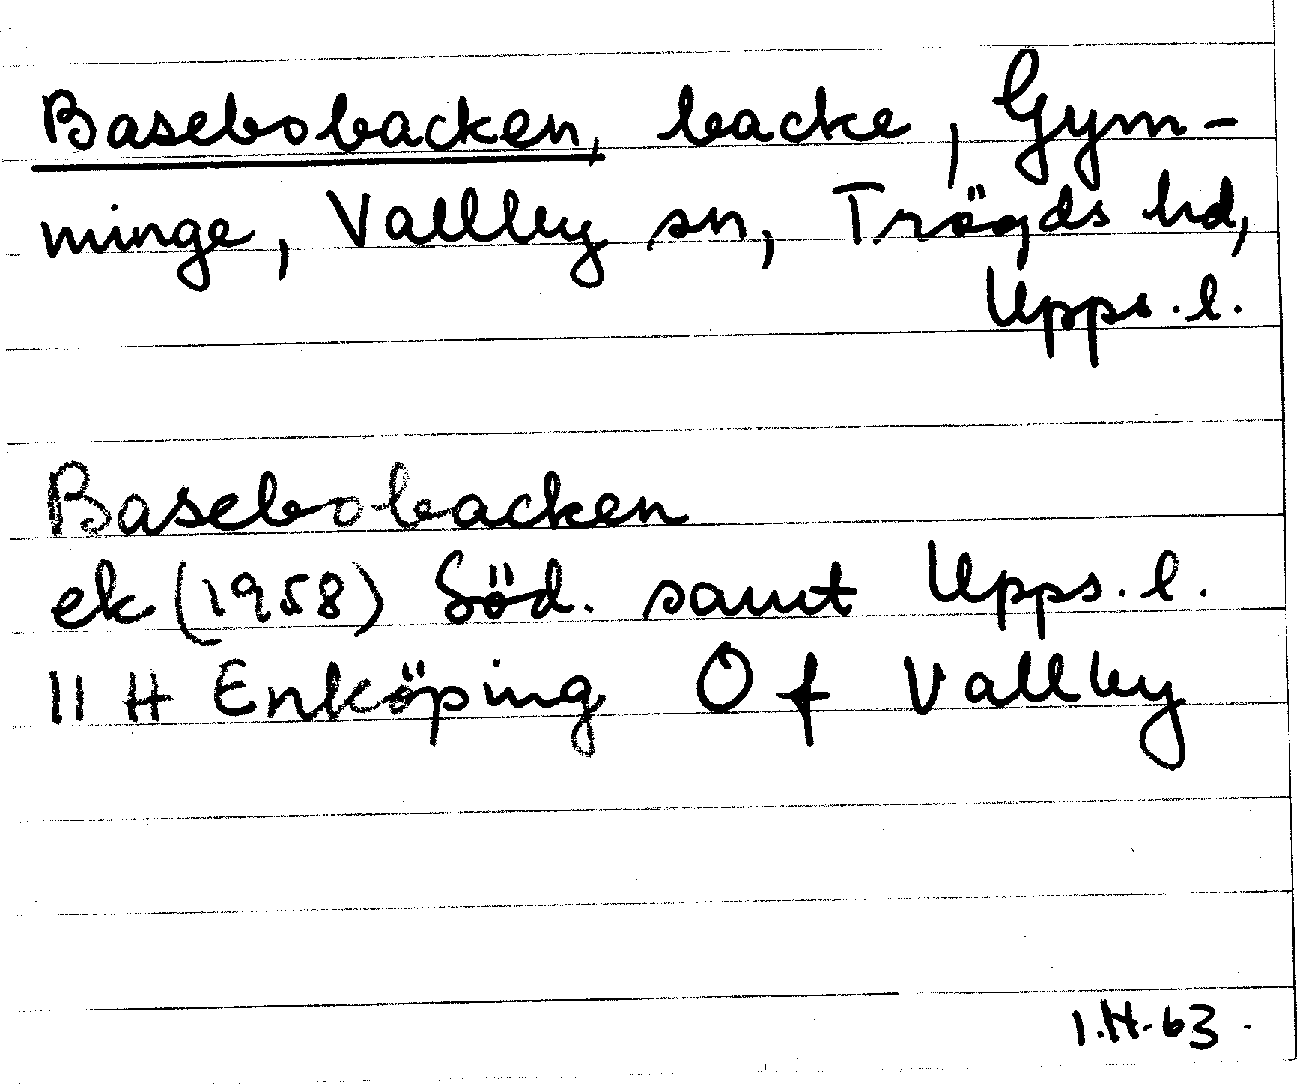 Basebobacken, backe, Gym-
minge, Vallby sn, Trögds hd,
Upps. l.
Basebobacken
ek (1958) Söd. samt Upps. l.
11 H Enköping 0 f Vallby
I.H. 63.